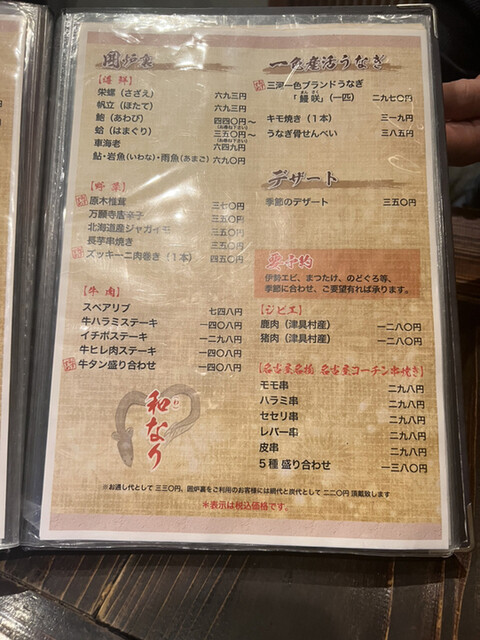 囲炉裏
【海鮮】
栄螺（さざえ） 六九三円
帆立（ほたて） 六九三円
鮑（あわび） 四四〇円〜
蛤（はまぐり） 三五〇円〜
車海老 六四九円
鮎・岩魚（いわな）・雨魚（あまご） 六九〇円
【野菜】
原木椎茸 三七〇円
万願寺唐辛子 三五〇円
北海道産ジャガイモ 三五〇円
長芋串焼き 三五〇円
ズッキーニ肉巻き（１本） 四五〇円
【牛肉】
スペアリブ 七四八円
牛ハラミステーキ 一四〇八円
イチボステーキ 一二九八円
牛ヒレ肉ステーキ 一四〇八円
牛タン盛り合わせ 一四〇八円
和なり
一色産活うなぎ
三河一色ブランドうなぎ
「鰻咲」（一匹） 二九七〇円
キモ焼き（１本） 三一九円
うなぎ骨せんべい 三八五円
デザート
季節のデザート 三五〇円
要予約
伊勢エビ、まつたけ、のどぐろ等、
季節に合わせ、ご要望有れば承ります。
【ジビエ】
鹿肉（津具村産） 一二八〇円
猪肉（津具村産） 一二八〇円
【名古屋名物 名古屋コーチン串焼き】
モモ串 二九八円
ハラミ串 二九八円
セセリ串 二九八円
レバー串 二九八円
皮串 二九八円
５種 盛り合わせ 一三八〇円
※お通し代として 三三〇円、囲炉裏をご利用のお客様には網代と炭代として 二二〇円 頂戴致します
＊表示は税込価格です。